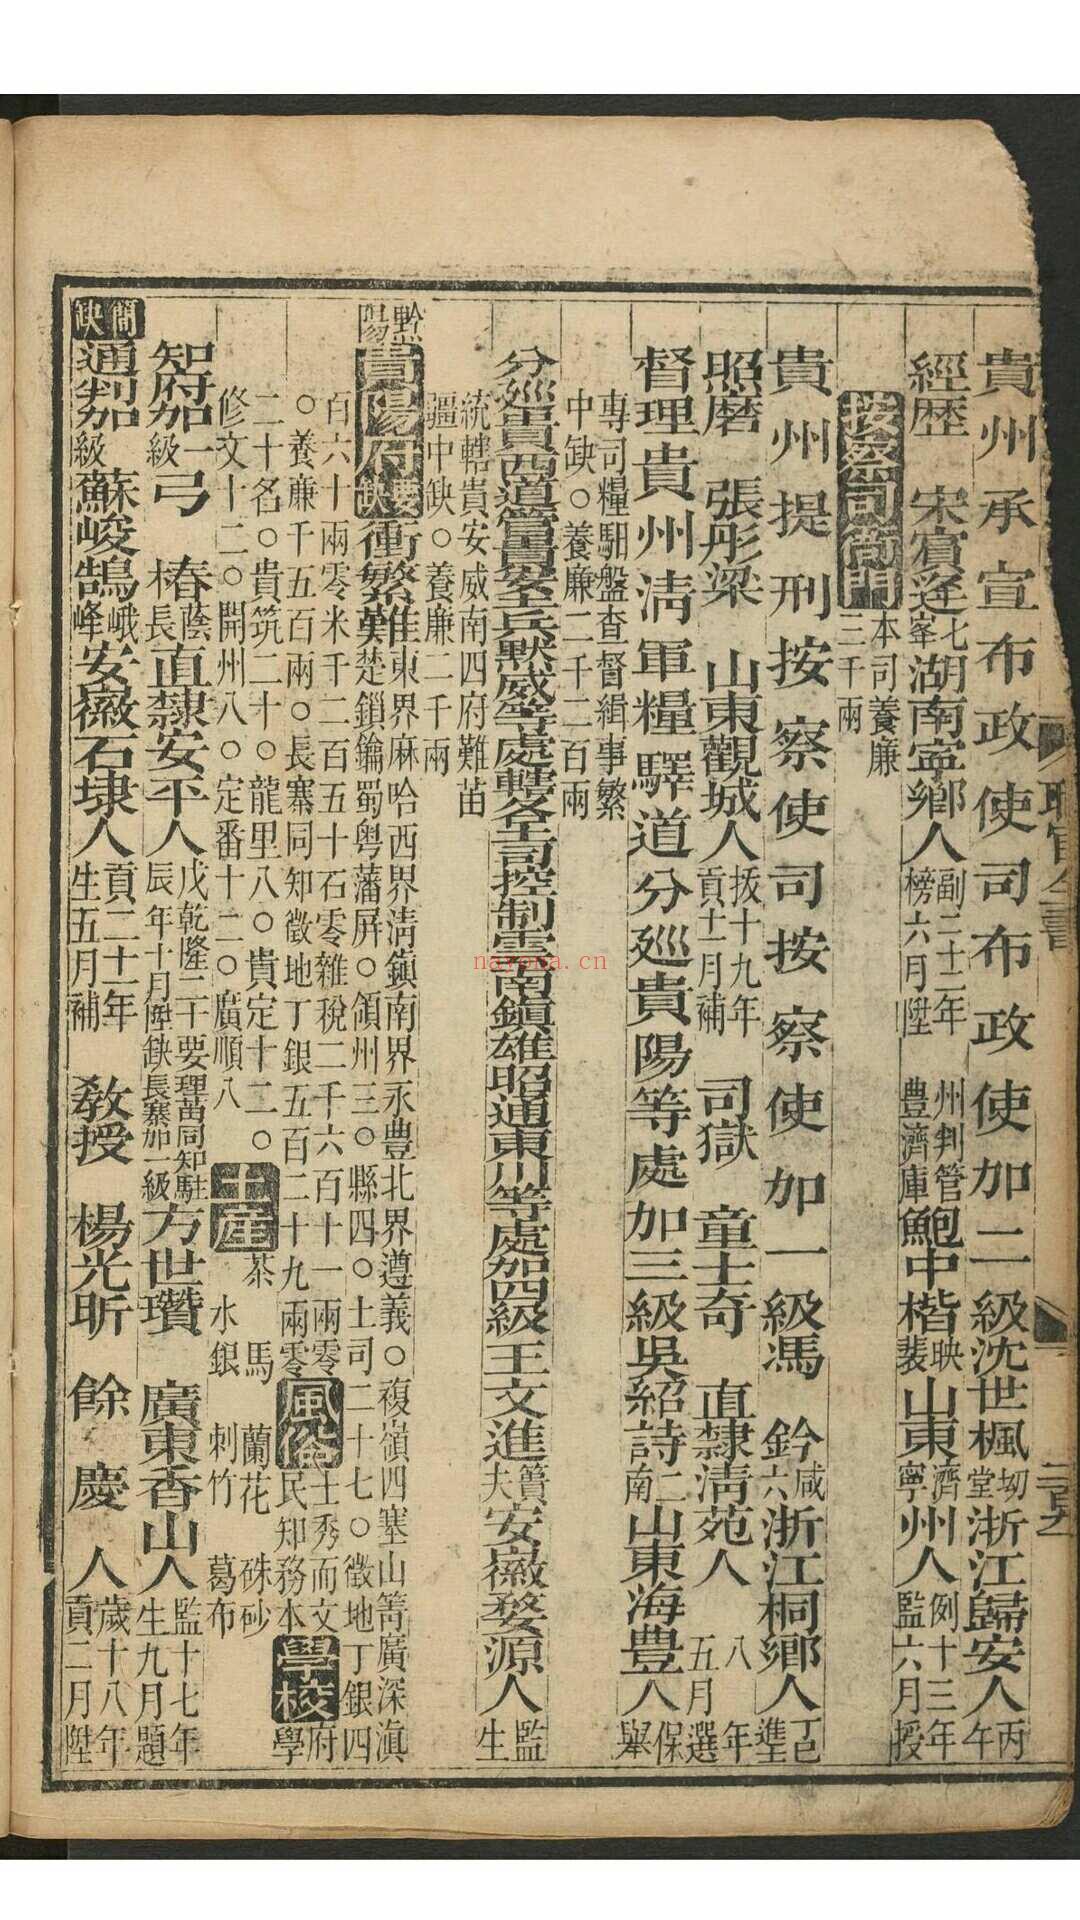 貴州承宣布政使司布政使加二級沈世楓坳堂浙江歸安人丙午
經歷 宋賓遥七峯湖南寧鄉人副二十二年榜六月陞 州判管豐濟庫鮑中楷映裴山東濟寧州人例十三年監六月授
按察司衙門本司養廉三千兩
貴州提刑按察使司按察使加一級馮 鈐咸六浙江桐鄉人丁巳進
照磨 張彤梁 山東觀城人拔十九年貢十一月補 司獄 童士奇 直隸清苑人 八年五月選
督理貴州清軍糧驛道分廵貴陽等處加三級吳紹詩二南山東海豊人保舉
專司糧馹盤查督緝事繁中缺○養廉二千二百兩
分廵貴西道管轄安土兵黙威等處轄各土司控制雲南鎮雄昭通東川等處加四級王文進簣夫安徽婺源人監生
統轄貴安威南四府難苗疆中缺○養廉二千兩
黔陽貴陽府要缺衝繁難東界麻哈西界清鎮南界永豊北界遵義○複嶺四塞山箐廣深滇楚鎖鑰蜀粤藩屏○領州三○縣四○土司二十七○徵地丁銀四
百六十兩零米千二百五十石零雜稅二千六百十一兩零○養亷千五百兩○長寨同知徵地丁銀五百二十九兩零風俗士秀而文民知務本學校府學
二十名○貴筑二十○龍里八○貴定十二○修文十二○開州八○定番十二○廣順八土產茶 馬 蘭花 硃砂 水銀 刺竹 葛布
知府加一級弓 椿蔭長直隸安平人戊乾隆二十辰年十月陞要缺理苗同知駐長寨加一級方世瓚 廣東香山人監十七年生九月題
簡缺通判加級蘇峻鵠峨峰安徽石埭人貢二十一年生五月補 教授 楊光昕 餘慶人歲十八年貢二月陞
職官全書